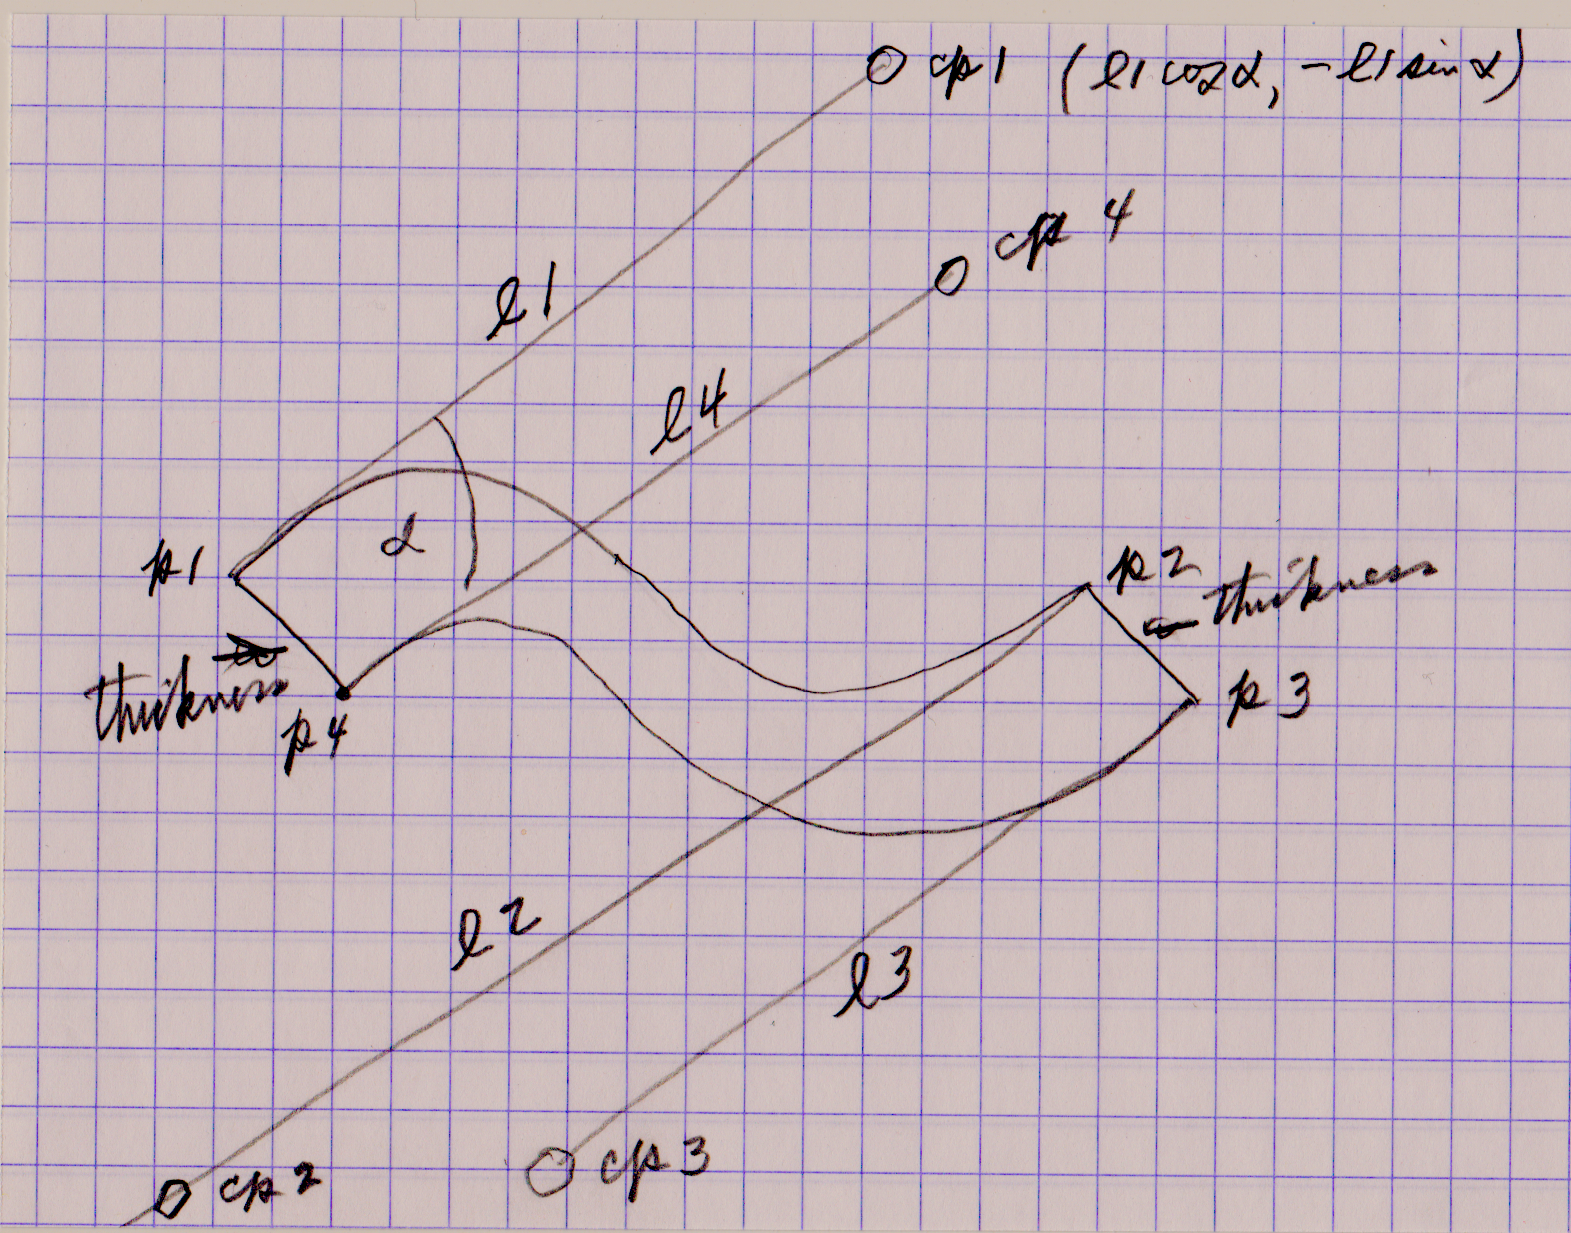 cp1 (l1 cosα, -l1 sinα)
cp4
l1
l4
α
p1
p2
thickness
thickness
p3
p4
l2
l3
cp3
cp2